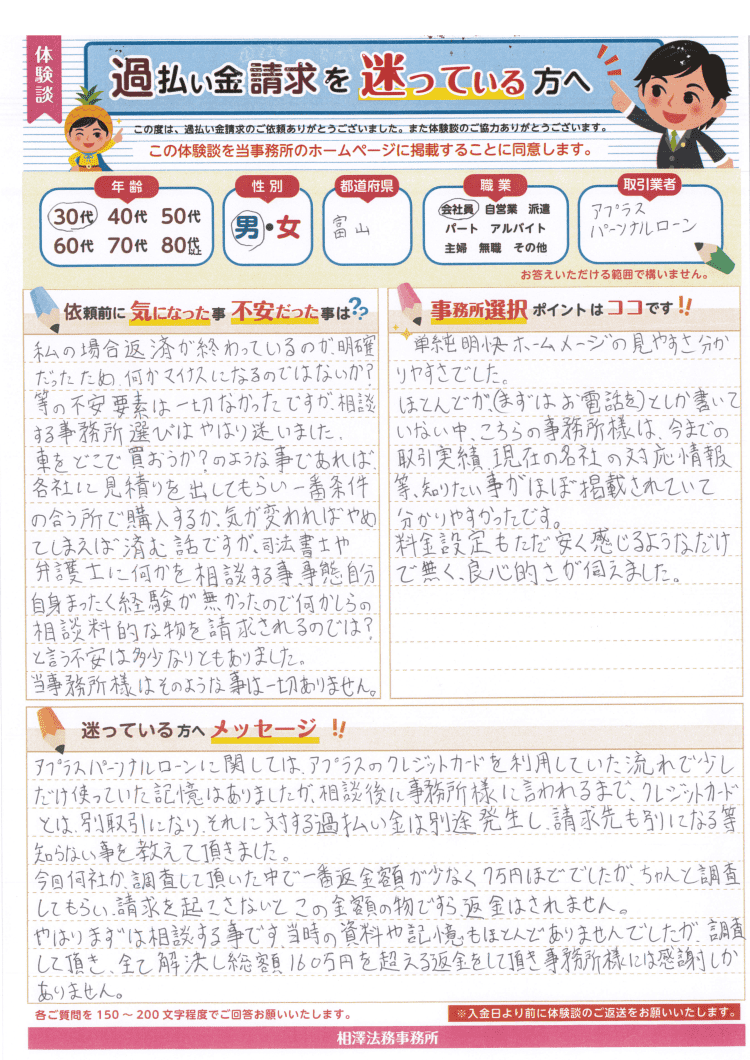 体験談
過払い金請求を迷っている方へ
この度は、過払い金請求のご依頼ありがとうございました。また体験談のご協力ありがとうございます。
この体験談を当事務所のホームページに掲載することに同意します。
年齢
30代 40代 50代
60代 70代 80代以上
性別
男・女
都道府県
富山
職業
会社員 自営業 派遣
パート アルバイト
主婦 無職 その他
取引業者
アプラス
パーソナルローン
お答えいただける範囲で構いません。
依頼前に気になった事 不安だった事は??
私の場合返済が終わっているのが、明確
だったため、何かマイナスになるのではないか?
等の不安要素は一切なかったですが、相談
する事務所選びはやはり迷いました。
車をどこで買おうか?のような事であれば、
各社に見積りを出してもらい一番条件
の合う所で購入するか、気が変われればやめ
てしまえば済む話ですが、司法書士や
弁護士に何かを相談する事、事態自分
自身まったく経験が無かったので何かしらの
相談料的な物を請求されるのでは?
と言う不安は多少なりともありました。
当事務所様はそのような事は一切ありません。
事務所選択ポイントはココです!!
単純明快ホームメージの見やすさ分か
りやすさでした。
ほとんどが(まずはお電話を)としか書いて
いない中、こちらの事務所様は、今までの
取引実績、現在の各社の対応情報
等、知りたい事がほぼ掲載されていて
分かりやすかったです。
料金設定もただ安く感じるようなだけ
で無く、良心的さが伺えました。
迷っている方へメッセージ!!
アプラスパーソナルローンに関しては、アプラスのクレジットカードを利用していた流れで少し
だけ使っていた記憶はありましたが、相談後に事務所様に言われるまで、クレジットカード
とは、別取引になり、それに対する過払い金は別途発生し、請求先も別になる等
知らない事を教えて頂きました。
今回何社か、調査して頂いた中で一番返金額が少なく7万円ほどでしたが、ちゃんと調査
してもらい、請求を起こさないとこの金額の物ですら、返金はされません。
やはりまずは相談する事です。当時の資料や記憶もほとんどありませんでしたが、調査
して頂き、全て解決し総額160万円を超える返金をして頂き事務所様には感謝しか
ありません。
各ご質問を150～200文字程度でご回答お願いいたします。
※入金日より前に体験談のご返送をお願いいたします。
相澤法務事務所